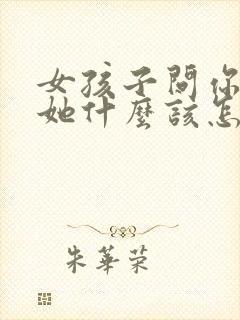 女孩子問你
她什麼該怎
朱華榮